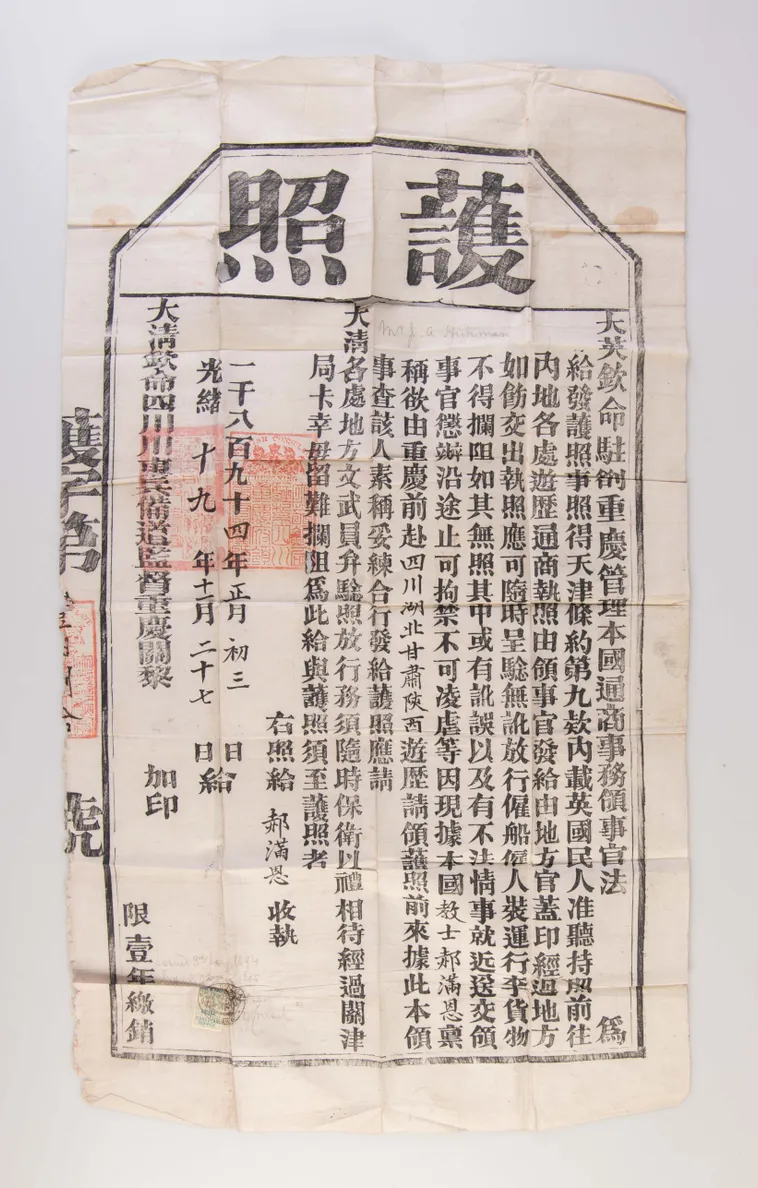 護照
大英欽命駐劄重慶管理本國通商事務領事官法 為
給發護照事照得天津條約第九欵內載英國民人准聽持照前往
內地各處遊歷通商執照由領事官發給由地方官蓋印經過地方
如飭交出執照應可隨時呈驗無訛放行僱船僱人裝運行李貨物
不得攔阻如其無照其中或有訛誤以及有不法情事就近送交領
事官懲辦沿途止可拘禁不可凌虐等因現據本國教士郝滿恩禀
稱欲由重慶前赴四川湖北甘肅陝西遊歷請領護照前來據此本領
事查該人素稱妥練合行發給護照應請
大清各處地方文武員弁驗照放行務須隨時保衛以禮相待經過關津
局卡幸毋留難攔阻為此給與護照須至護照者
Mr J. A. Hickman
右照給 郝滿恩 收執
一千八百九十四年正月初三日
光緒十九年十一月二十七日給
大清欽命四川川東兵備道監督重慶關黎 加印
限壹年繳銷
護字第
號